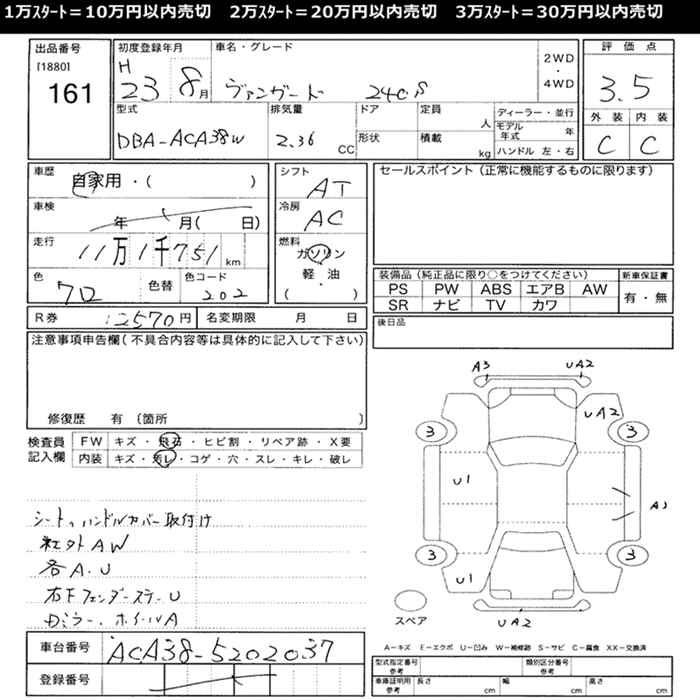 1万ｽﾀｰﾄ＝10万円以内売切　2万ｽﾀｰﾄ＝20万円以内売切　3万ｽﾀｰﾄ＝30万円以内売切
出品番号
[1880]
161
初度登録年月
H
23 8月
車名・グレード
ヴァンガード 240S
2WD
・
4WD
評価点
3.5
外装 内装
C C
型式
DBA-ACA38W
排気量
2.36
CC
ドア
形状
定員
人
積載
kg
ディーラー・並行
モデル年式
年
ハンドル 左・右
車歴
自家用・( )
車検
年 月( 日)
走行
11万1千751
km
色
クロ
色替
色コード
202
シフト
AT
冷房
AC
燃料
ガソリン
軽・油
( )
セールスポイント（正常に機能するものに限ります）
装備品（純正品に限り○をつけてください）
PS PW ABS エアB AW
SR ナビ TV カワ
新車保証書
有・無
後日品
R券
12570円
名変期限 月 日
注意事項申告欄(不具合内容等は具体的に記入して下さい)
修復歴 有 〔箇所 〕
検査員
記入欄
FW キズ・飛石・ヒビ割・リペア跡・X要
内装 キズ・汚レ・コゲ・穴・スレ・キレ・破レ
シート、ハンドルカバー取付け
社外AW
各A.U
右下フェンダーステーU
ドミラー、ホイールA
A3
UA2
UA2
3
3
U1
A1
3
3
U1
UA2
スペア
A－キズ E－エクボ U－凹み W－補修跡 S－サビ C－腐食 XX－交換済
車台番号
ACA38-5202037
登録番号
型式指定番号
参考
類別区分番号
参考
車庫証明用
参考
長さ
cm
幅
cm
高さ
cm